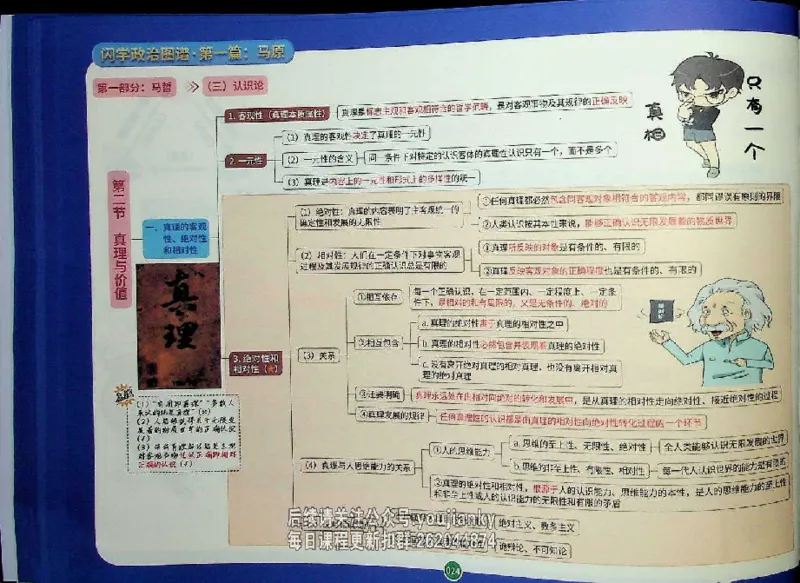 闪学政治图谱·第一篇：马原
第一部分：马哲
（三）认识论
第二节 真理与价值
一、真理的客观性、绝对性和相对性
真理
真相
只有一个
1. 客观性（真理本质属性）
真理是标志主观和客观相符合的哲学范畴，是对客观事物及其规律的正确反映
2. 一元性
（1）真理的客观性决定了真理的一元性
（2）一元性的含义
同一条件下对特定的认识客体的真理性认识只有一个，而不是多个
（3）真理是内容上的一元性和形式上的多样性的统一
3. 绝对性和相对性（★）
（1）绝对性：真理的内容表明了主客观统一的确定性和发展的无限性
①任何真理都必然包含同客观对象相符合的客观内容，都同谬误有原则的界限
②人类认识按其本性来说，能够正确认识无限发展着的物质世界
（2）相对性：人们在一定条件下对事物客观过程及其发展规律的正确认识总是有限的
①真理所反映的对象是有条件的、有限的
②真理反映客观对象的正确程度也是有条件的、有限的
（3）关系
①相互依存
每一个正确认识，在一定范围内、一定程度上、一定条件下，是相对的和有局限的，又是无条件的、绝对的
②相互包含
a. 真理的绝对性寓于真理的相对性之中
b. 真理的相对性必然包含并表现着真理的绝对性
c. 没有离开绝对真理的相对真理，也没有离开相对真理的绝对真理
③注意明确
真理永远处在由相对向绝对的转化和发展中，是从真理的相对性走向绝对性、接近绝对性的过程
④真理发展的规律
任何真理性的认识都是由真理的相对性向绝对性转化过程的一个环节
（4）真理与人思维能力的关系
①人的思维能力
a. 思维的至上性、无限性、绝对性
全人类能够认识无限发展的世界
b. 思维的非至上性、有限性、相对性
每一代人认识世界的能力是有限的
②真理的绝对性和相对性，根源于人的认识能力、思维能力的本性，是人的思维能力的至上性和非至上性或人的认识能力的无限性和有限性的矛盾
绝对主义、教条主义
诡辩论、不可知论
后续请关注公众号youjianky
024